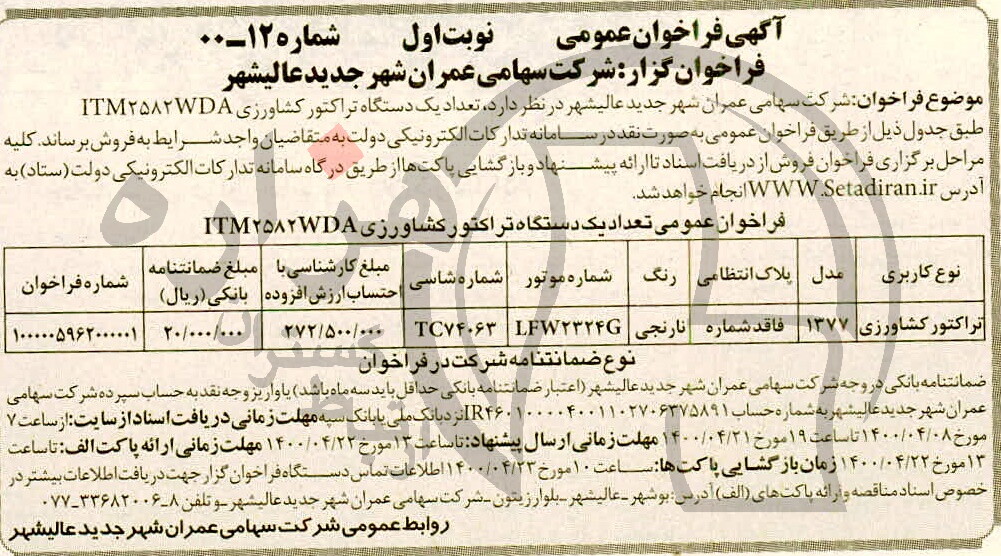 آگهی فراخوان عمومی نوبت اول شماره ۱۲ـ۰۰
فراخوان گزار: شرکت سهامی عمران شهر جدید عالیشهر
موضوع فراخوان: شرکت سهامی عمران شهر جدید عالیشهر در نظر دارد، تعداد یک دستگاه تراکتور کشاورزی ITM۲۵۸۲WDA
طبق جدول ذیل از طریق فراخوان عمومی به صورت نقد در سامانه تدارکات الکترونیکی دولت به متقاضیان واجد شرایط به فروش برساند. کلیه
مراحل برگزاری فراخوان فروش از دریافت اسناد تا ارائه پیشنهاد و بازگشایی پاکت‌ها از طریق درگاه سامانه تدارکات الکترونیکی دولت (ستاد) به
آدرس WWW.Setadiran.ir انجام خواهد شد.
فراخوان عمومی تعداد یک دستگاه تراکتور کشاورزی ITM۲۵۸۲WDA
نوع کاربری مدل پلاک انتظامی رنگ شماره موتور شماره شاسی مبلغ کارشناسی با احتساب ارزش افزوده مبلغ ضمانتنامه بانکی (ریال) شماره فراخوان
تراکتور کشاورزی ۱۳۷۷ فاقد شماره نارنجی LFW۲۳۲۴G TC۷۴۰۶۳ ۲۷۲/۵۰۰/۰۰۰ ۲۰/۰۰۰/۰۰۰ ۱۰۰۰۰۰۵۹۶۲۰۰۰۰۰۱
نوع ضمانتنامه شرکت در فراخوان
ضمانتنامه بانکی در وجه شرکت سهامی عمران شهر جدید عالیشهر (اعتبار ضمانتنامه بانکی حداقل باید سه ماه باشد) یا واریز وجه نقد به حساب سپرده شرکت سهامی
عمران شهر جدید عالیشهر به شماره حساب IR۴۶۰۱۰۰۰۰۴۰۰۱۱۰۲۷۰۶۳۷۵۸۹۱ نزد بانک ملی یا بانک سپه مهلت زمانی دریافت اسناد از سایت: از ساعت ۷
مورخ ۱۴۰۰/۰۴/۰۸ تا ساعت ۱۹ مورخ ۱۴۰۰/۰۴/۲۱ مهلت زمانی ارسال پیشنهاد: تا ساعت ۱۳ مورخ ۱۴۰۰/۰۴/۲۲ مهلت زمانی ارائه پاکت الف: تا ساعت
۱۳ مورخ ۱۴۰۰/۰۴/۲۲ زمان بازگشایی پاکت‌ها: ساعت ۱۰ مورخ ۱۴۰۰/۰۴/۲۳ اطلاعات تماس دستگاه فراخوان گزار جهت دریافت اطلاعات بیشتر در
خصوص اسناد مناقصه و ارائه پاکت‌های (الف) آدرس: بوشهر ـ عالیشهر ـ بلوار زیتون ـ شرکت سهامی عمران شهر جدید عالیشهر ـ و تلفن ۸ـ۳۳۶۸۲۰۰۶ـ۰۷۷
روابط عمومی شرکت سهامی عمران شهر جدید عالیشهر